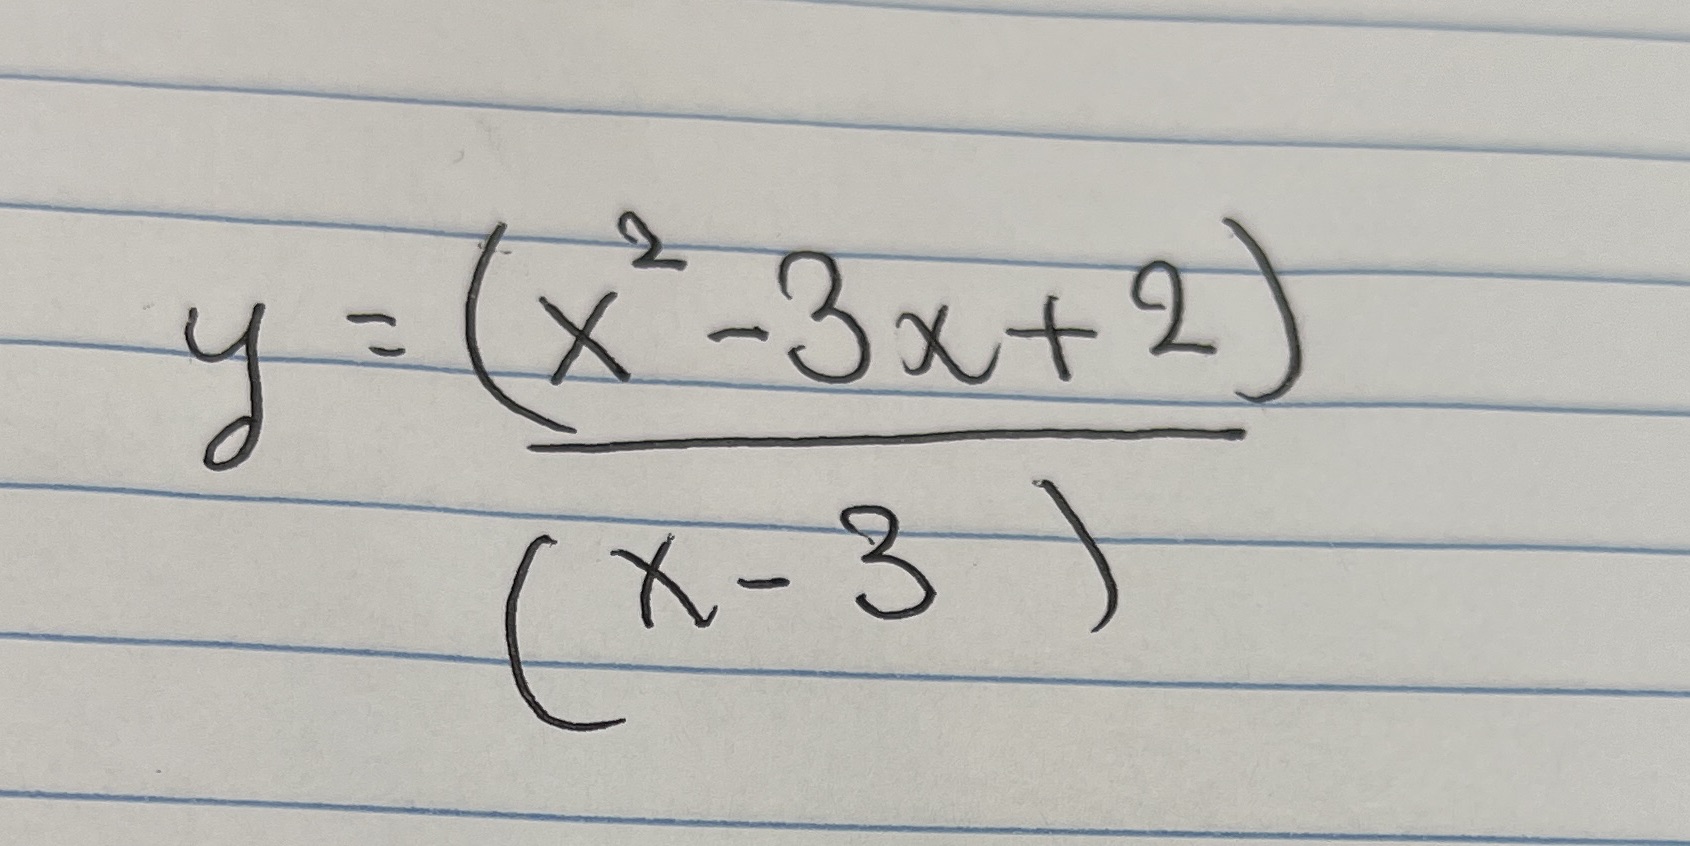 y = (x² - 3x + 2)
(x - 3)